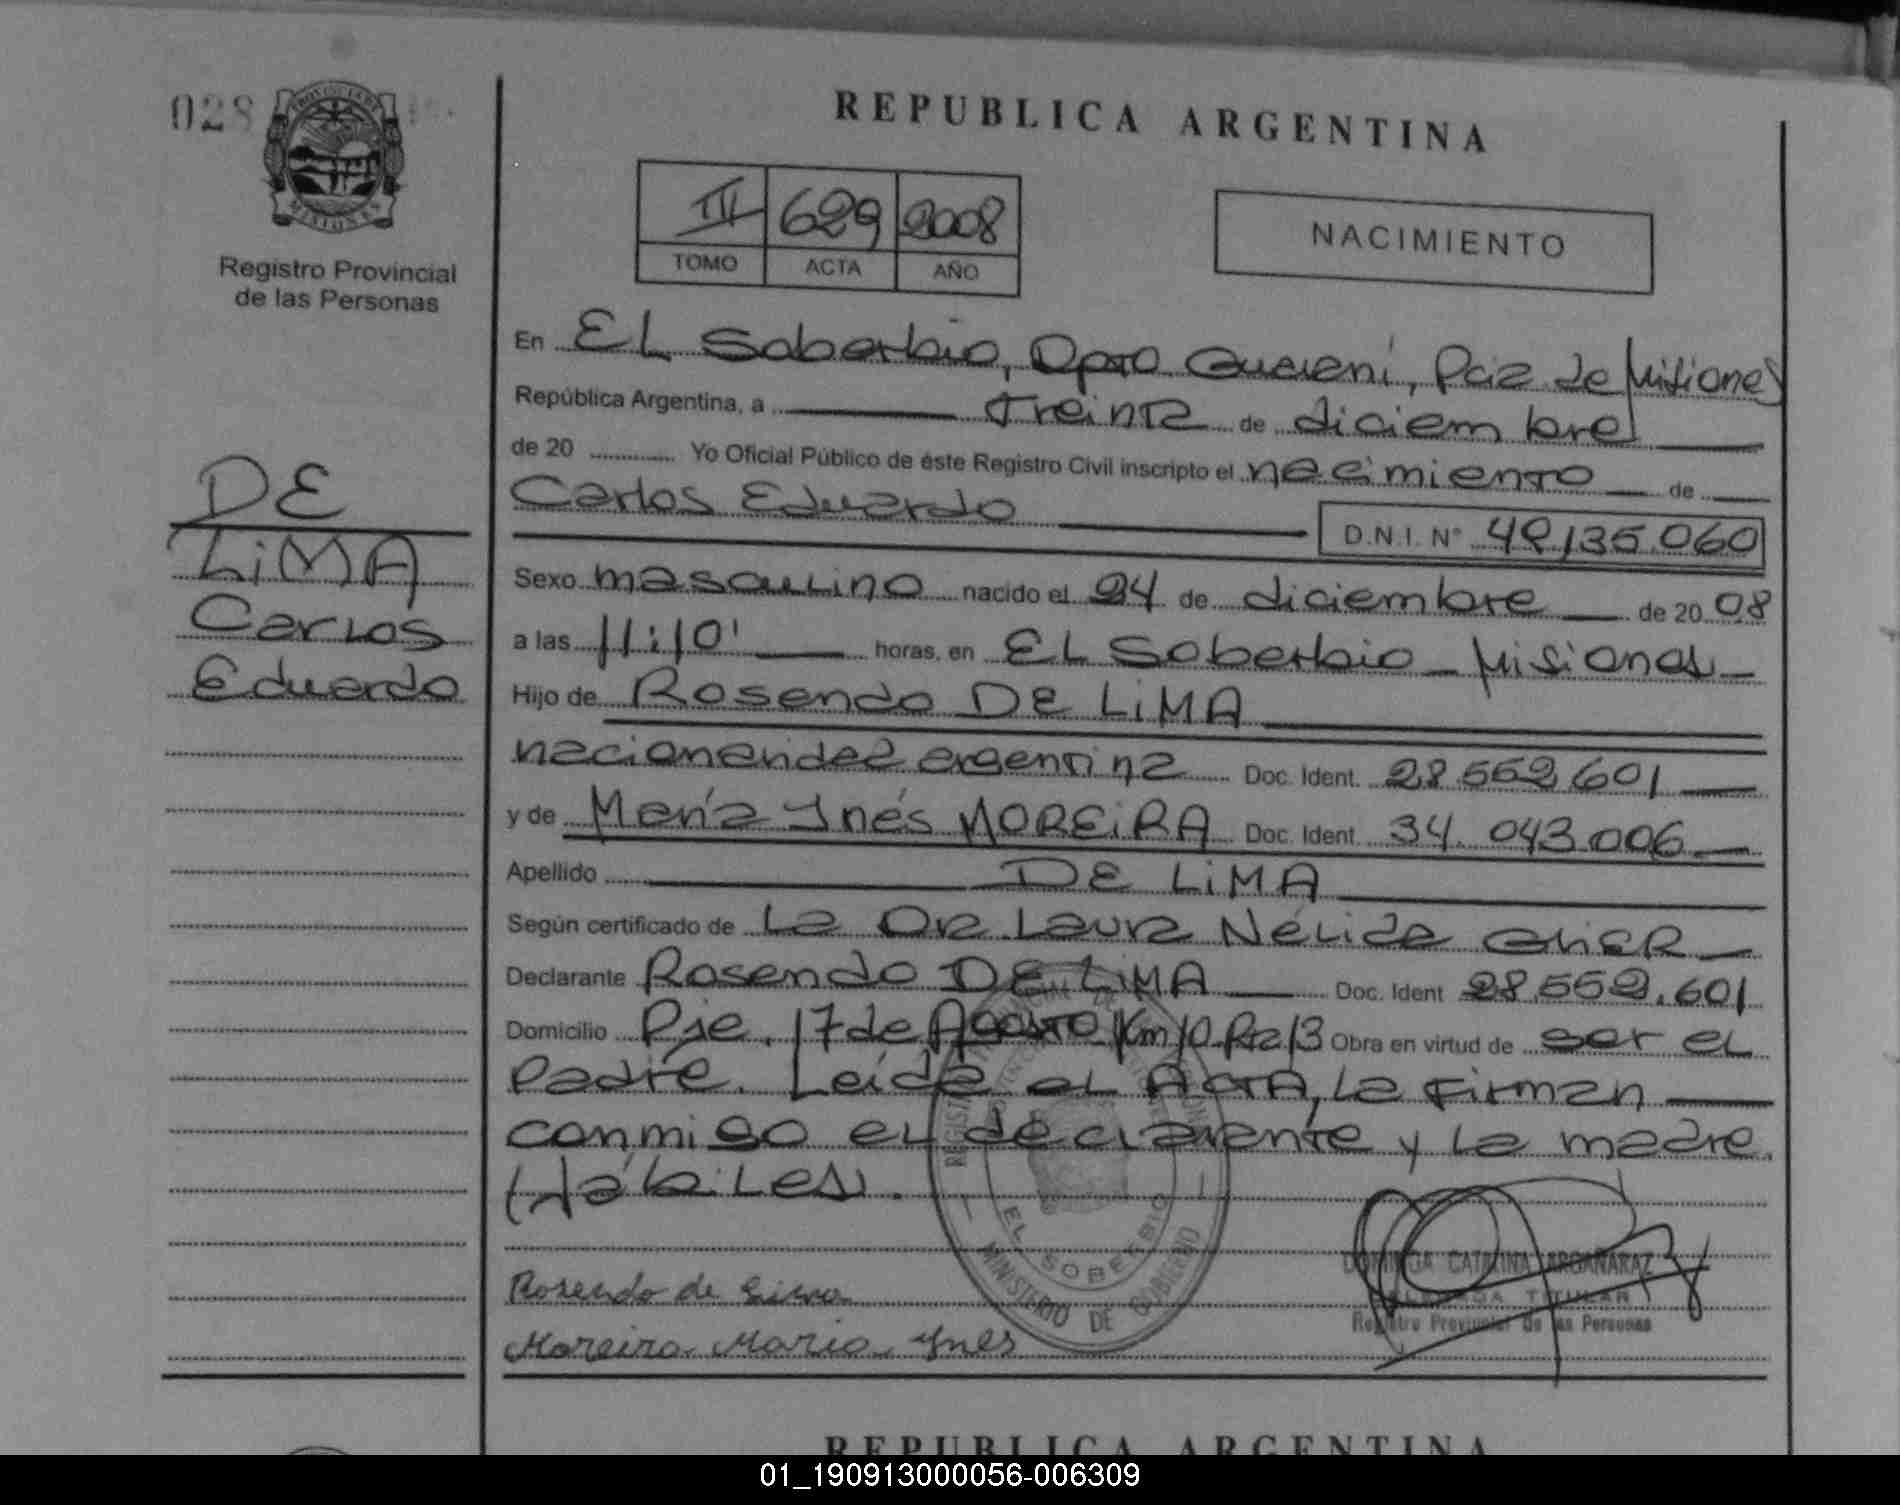 028
PROVINCIA DE
MISIONES
Registro Provincial
de las Personas
DE
LiMA
Carlos
Eduardo
REPUBLICA ARGENTINA
III 629 2008
TOMO ACTA AÑO
NACIMIENTO
En EL Soberbio, Dpto Guarani, Pcia de Misiones
República Argentina, a treinta de diciembre
de 20 Yo Oficial Público de éste Registro Civil inscripto el nacimiento de
Carlos Eduardo D.N.I. N° 49.135.060
Sexo masculino nacido el 24 de diciembre de 20 08
a las 11:10' horas, en EL Soberbio - Misiones -
Hijo de Rosendo DE LiMA
nacionalidad argentina Doc. Ident. 28.552.601
y de María Ynés MOREiRA Doc. Ident. 34.043.006
Apellido DE LiMA
Según certificado de La Dra Laura Nélida
Declarante Rosendo DE LiMA Doc. Ident 28.552.601
Domicilio Pje. 17 de Agosto Km 10 Rta 13 Obra en virtud de ser el
Padre. Leída el ACTA, la firman
conmigo el declarante y la madre.
Hábiles.
EL SOBERBIO
MINISTERIO DE GOBIERNO
Rosendo de Lima
Moreira Maria Ynes
DOMINGA CATALINA ARGAÑARAZ
DELEGADA TITULAR
Registro Provincial de las Personas
REPUBLICA ARGENTINA
01_190913000056-006309